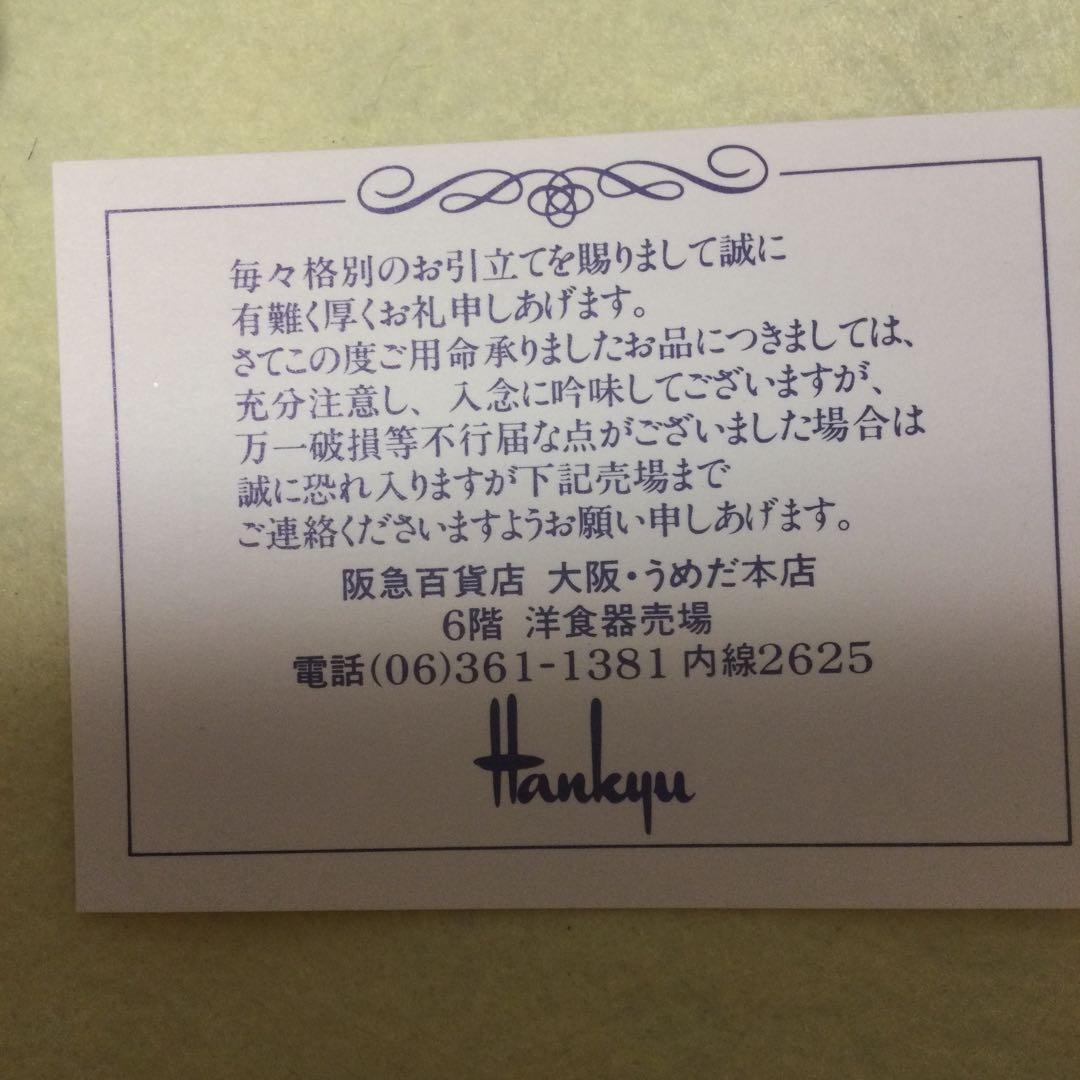 毎々格別のお引立てを賜りまして誠に
有難く厚くお礼申しあげます。
さてこの度ご用命承りましたお品につきましては、
充分注意し、入念に吟味してございますが、
万一破損等不行届な点がございました場合は
誠に恐れ入りますが下記売場まで
ご連絡くださいますようお願い申しあげます。
阪急百貨店 大阪・うめだ本店
6階 洋食器売場
電話(06)361-1381 内線2625
Hankyu